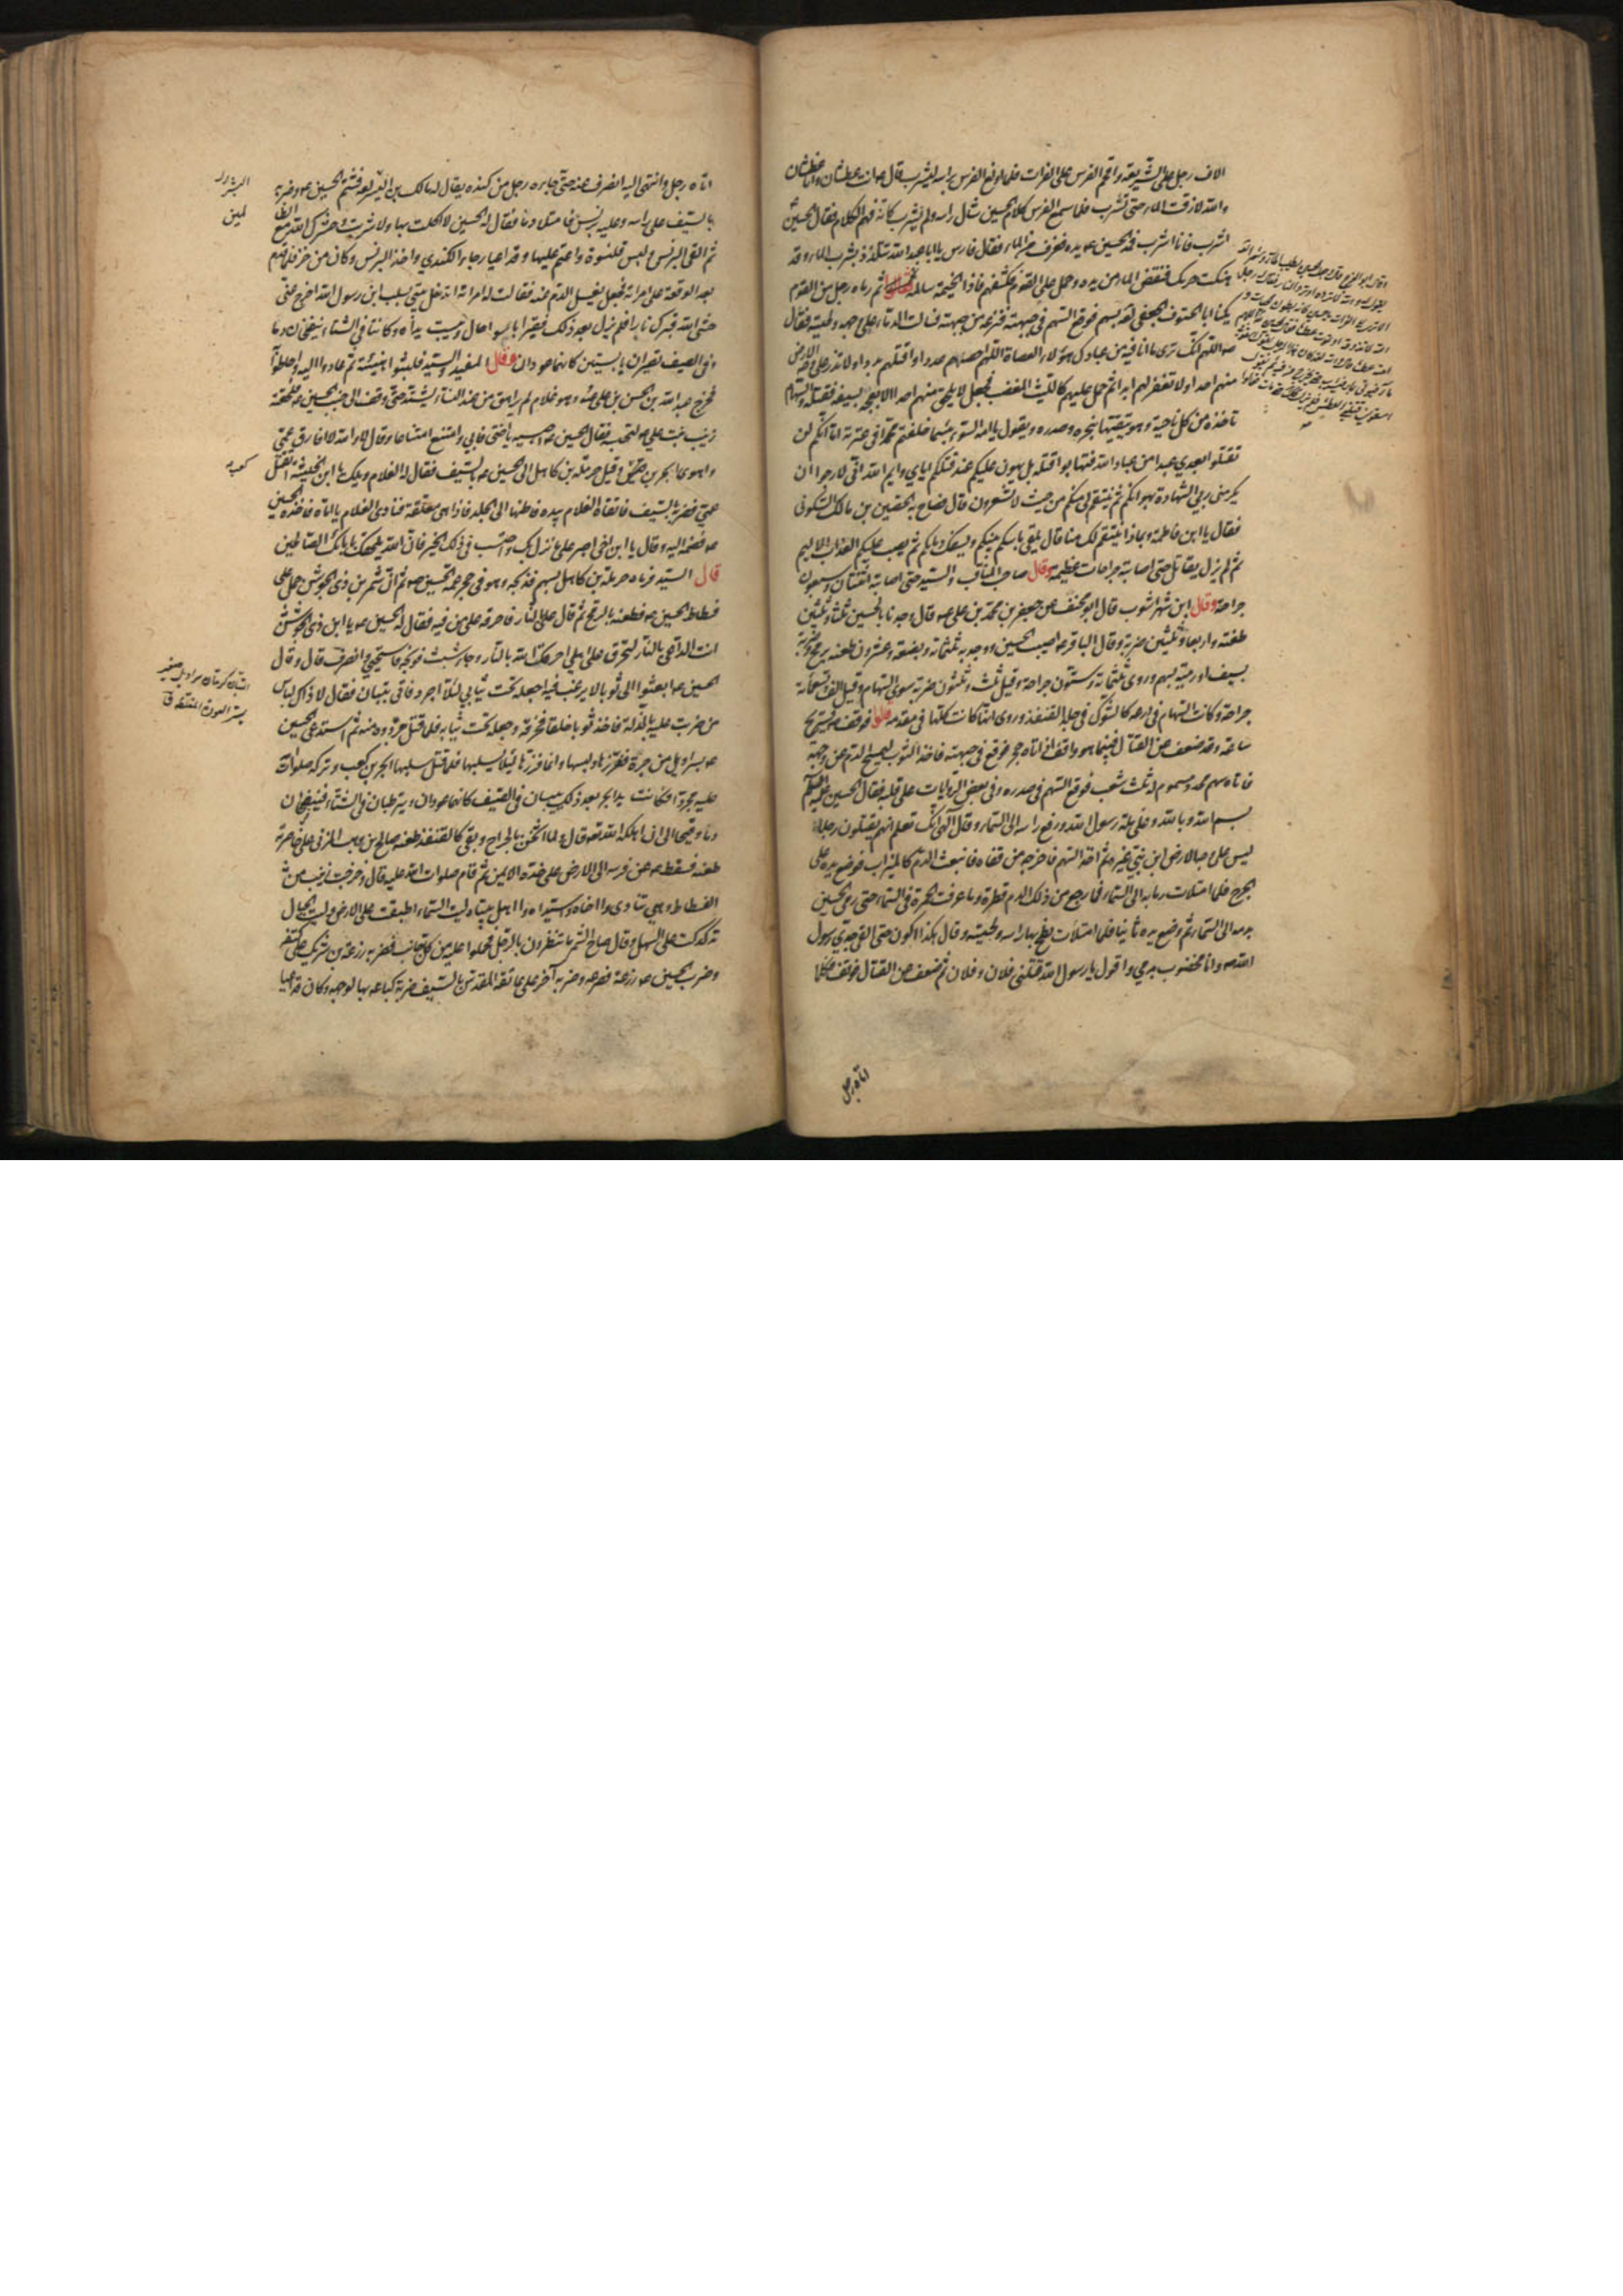 الاف رجل على الشريعة واقحم الفرس على الفرات فلما اولغ الفرس براسه ليشرب قال ع انت عطشان وانا عطشان
والله لا ذقت الماء حتى تشرب فلما سمع الفرس كلام الحسين شال راسه ولم يشرب كانه فهم الكلام فقال الحسين
اشرب فانا اشرب فمد الحسين ع يده فغرف من الماء فقال فارس يا ابا عبد الله تتلذذ بشرب الماء وقد
هتكت حرمك فنفض الماء من يده وحمل على القوم فكشفهم فاذا الخيمة سالمة ثم رماه رجل من القوم
يكنى ابا الحتوف الجعفي لعنه بسهم فوقع السهم في جبهته فنزعه من جبهته فسالت الدماء على وجهه ولحيته فقال
ع اللهم انك ترى ما انا فيه من عبادك هؤلاء العصاة اللهم احصهم عددا واقتلهم بددا ولا تذر على وجه الارض
منهم احدا ولا تغفر لهم ابدا ثم حمل عليهم كالليث المغضب فجعل لا يلحق منهم احدا الا بعجه بسيفه فقتله والسهام
تاخذه من كل ناحية وهو يتقيها بنحره وصدره ويقول يا امة السوء بئسما خلفتم محمدا في عترته اما انكم لن
تقتلوا بعدي عبدا من عباد الله فتهابوا قتله بل يهون عليكم عند قتلكم اياي وايم الله اني لارجو ان
يكرمني ربي بالشهادة بهوانكم ثم ينتقم لي منكم من حيث لا تشعرون قال فصاح به الحصين بن مالك السكوني
فقال يا ابن فاطمة وبماذا ينتقم لك منا قال يلقي باسكم بينكم ويسفك دمائكم ثم يصب عليكم العذاب الاليم
ثم لم يزل يقاتل حتى اصابته جراحات عظيمة وقال صاحب المناقب والسيد حتى اصابته اثنتان وسبعون
جراحة وقال ابن شهراشوب قال ابو مخنف عن جعفر بن محمد بن علي ع قال وجدنا بالحسين ثلثا وثلثين
طعنة واربعا وثلثين ضربة وقال الباقر ع اصيب الحسين ووجد به ثلثمائة وبضعة وعشرون طعنة برمح وضربة
بسيف او رمية بسهم وروي ثلثمائة وستون جراحة وقيل ثلث وثلثون ضربة سوى السهام وقيل الف وتسعمائة
جراحة وكانت السهام في درعه كالشوك في جلد القنفذ وروي انها كانت كلها في مقدمه قالوا فوقف ع يستريح
ساعة وقد ضعف عن القتال فبينما هو واقف اذ اتاه حجر فوقع في جبهته فاخذ الثوب ليمسح الدم عن وجهه
فاتاه سهم محدد مسموم له ثلث شعب فوقع السهم في صدره وفي بعض الروايات على قلبه فقال الحسين عليه السلم
بسم الله وبالله وعلى ملة رسول الله ورفع راسه الى السماء وقال الهي انك تعلم انهم يقتلون رجلا
ليس على وجه الارض ابن نبي غيره ثم اخذ السهم فاخرجه من قفاه فانبعث الدم كالميزاب فوضع يده على
الجرح فلما امتلات رمى به الى السماء فما رجع من ذلك الدم قطرة وما عرفت الحمرة في السماء حتى رمى الحسين
بدمه الى السماء ثم وضع يده ثانيا فلما امتلات لطخ بها راسه ولحيته وقال هكذا اكون حتى القى جدي رسول
الله ص وانا مخضوب بدمي واقول يا رسول الله قتلني فلان وفلان ثم ضعف عن القتال فوقف فكلما
اتاه رجل
اتاه رجل وانتهى اليه انصرف عنه حتى جاءه رجل من كنده يقال له مالك بن اليسر لعنه فشتم الحسين ع وضربه
بالسيف على راسه وعليه برنس فامتلا دما فقال له الحسين لا اكلت بها ولا شربت وحشرك الله مع الظالمين
ثم القى البرنس ولبس قلنسوة واعتم عليها وقد اعيا وجاء الكندي واخذ البرنس وكان من خز فلما قدم
بعد الوقعة على امراته فجعل يغسل الدم عنه فقالت له امراته اتدخل بيتي بسلب ابن رسول الله اخرج عني
حشى الله قبرك نارا فلم يزل بعد ذلك فقيرا باسوا حال ويبست يداه وكانتا في الشتاء ينضخان دما
وفي الصيف تصيران يابستين كانهما عودان وقال المفيد والسيد فلبثوا هنيئة ثم عادوا اليه واحاطوا
فخرج عبد الله بن الحسن بن علي ع وهو غلام لم يراهق من عند النساء يشتد حتى وقف الى جنب الحسين ع فلحقته
زينب بنت علي ع لتحبسه فقال الحسين ع احبسيه يا اختي فابى وامتنع امتناعا وقال لا والله لا افارق عمي
واهوى ابجر بن كعب وقيل حرملة بن كاهل الى الحسين ع بالسيف فقال له الغلام ويلك يا ابن الخبيثة اتقتل
عمي فضربه بالسيف فاتقاه الغلام بيده فاطنها الى الجلد فاذا هي معلقة فنادى الغلام يا اماه فاخذه الحسين
ع فضمه اليه وقال يا ابن اخي اصبر على ما نزل بك واحتسب في ذلك الخير فان الله يلحقك بابائك الصالحين
قال السيد فرماه حرملة بن كاهل بسهم فذبحه وهو في حجر عمه الحسين ع ثم ان شمر بن ذي الجوشن حمل على
فسطاط الحسين ع فطعنه بالرمح ثم قال علي بالنار فاحرقه على من فيه فقال له الحسين ع يا ابن ذي الجوشن
انت الداعي بالنار لتحرق على اهلي احرقك الله بالنار وجاء شبث فوبخه فاستحيى وانصرف قال وقال
الحسين ع ابعثوا الي ثوبا لا يرغب فيه اجعله تحت ثيابي لئلا اجرد فاتي بتبان فقال لا ذاك لباس
من ضربت عليه بالذلة فاخذ ثوبا خلقا فخرقه وجعله تحت ثيابه فلما قتل جردوه منه ثم استدعى الحسين
ع بسراويل من حبرة ففزرها ولبسها وانما فزرها لئلا يسلبها فلما قتل سلبها ابجر بن كعب وتركه صلوات الله
عليه مجردا فكانت يدا ابجر بعد ذلك ييبسان في الصيف كانهما عودان ويترطبان في الشتاء فينضخان
دما وقيحا الى ان اهلكه الله تعالى قال ولما اثخن بالجراح وبقي كالقنفذ طعنه صالح بن وهب المزني على خاصرته
طعنة فسقط ع عن فرسه الى الارض على خده الايمن ثم قام صلوات الله عليه قال وخرجت زينب من
الفسطاط وهي تنادي وااخاه واسيداه وااهل بيتاه ليت السماء اطبقت على الارض وليت الجبال
تدكدكت على السهل وقال صاح الشمر ما تنتظرون بالرجل فحملوا عليه من كل جانب فضربه زرعة بن شريك على كتفه
وضرب الحسين ع زرعة فصرعه وضربه آخر على عاتقه المقدس بالسيف ضربة كبا ع بها لوجهه وكان قد اعيا
التبان كرمان سراويل صغير
يستر العورة المغلظة ق